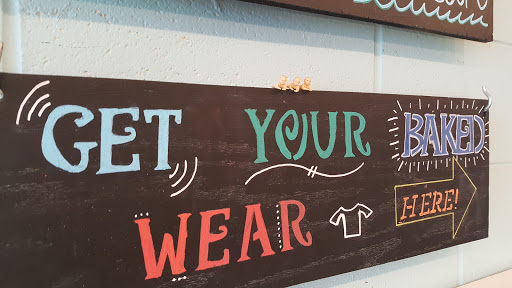 GET YOUR BAKED
WEAR HERE!